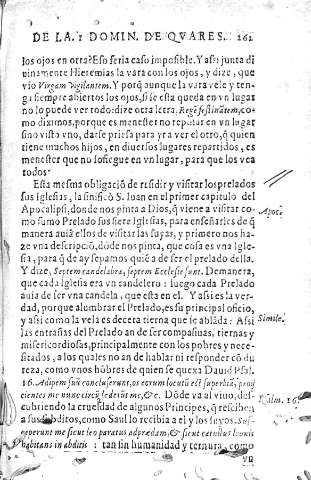 DE LA. 1 DOMIN. DE QVARES. 262
los ojos en otra? Eso seria caso imposible. Y asi junta di
uinamente Hieremias la vara con los ojos, y dize, que
vio Virgam vigilantem. Y porq̃ aunque la vara vele y ten-
ga siempre abiertos los ojos, si se esta queda en vn lugar
no lo puede ver todo: dize otra letra, Regẽ festinãtem, co-
mo diximos, porque es menester no reposar en vn lugar
sino visto vno, darse priesa para yr a ver el otro, q̃ quien
tiene muchos hijos, en diuersos lugares repartidos, es
menester que no sosiegue en vn lugar, para que los vea
todos.
Esta mesma obligaciõ de residir y visitar los prelados
sus Iglesias, la sinificò S. Iuan en el primer capitulo del
Apocalipsi, donde nos pinta a Dios, q̃ viene a visitar co-
mo sumo Prelado sus siete Iglesias, para enseñarles de q̃
manera auiã ellos de visitar las suyas, y primero nos ha-
ze vna descripciõ, dõde nos pinta, que cosa es vna Igle-
sia, para q̃ de ay sepamos quiẽ a de ser el prelado della.
Y dize, Septem candelabra, septem Ecclesiæ sunt. De manera,
que cada Iglesia era vn candelero: luego cada Prelado
auia de ser vna candela, que esta en el. Y asi es la ver-
dad, porque alombrar el Prelado, es su principal oficio,
y asi como la vela es de cera tierna que se ablãda: Asi
las entrañas del Prelado an de ser compasiuas, tiernas y
misericordiosas, principalmente con los pobres y nece-
sitados, a los quales no an de hablar ni responder cõ du
reza, como vnos hõbres de quien se quexa Dauid Psal.
16. Adipem suũ concluserunt, os eorum locutũ est superbiã, proij
cientes me nunc circũdederũt me, &c. Dõde va al viuo, des-
cubriendo la crueldad de algunos Principes, q̃ resciben
a sus subditos, como Saul lo recibia a el y los suyos. Sus-
ceperunt me sicut leo paratus ad prædam, & sicut catulus leonis
habitans in abditis: tan sin humanidad y ternura, como
vn
Apoc.
Simile.
Psalm. 16.